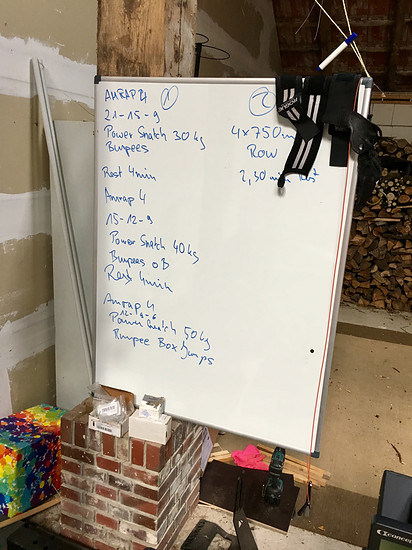 AMRAP 4 1
21-15-9
Power Snatch 30 kg
Burpees
Rest 4 min
Amrap 4
15-12-9
Power Snatch 40kg
Burpees OB
Rest 4min
Amrap 4
12-9-6
Power Snatch 50kg
Burpee Box Jumps
2
4x750m
Row
2,30 min Rest
ROGUE
Concept